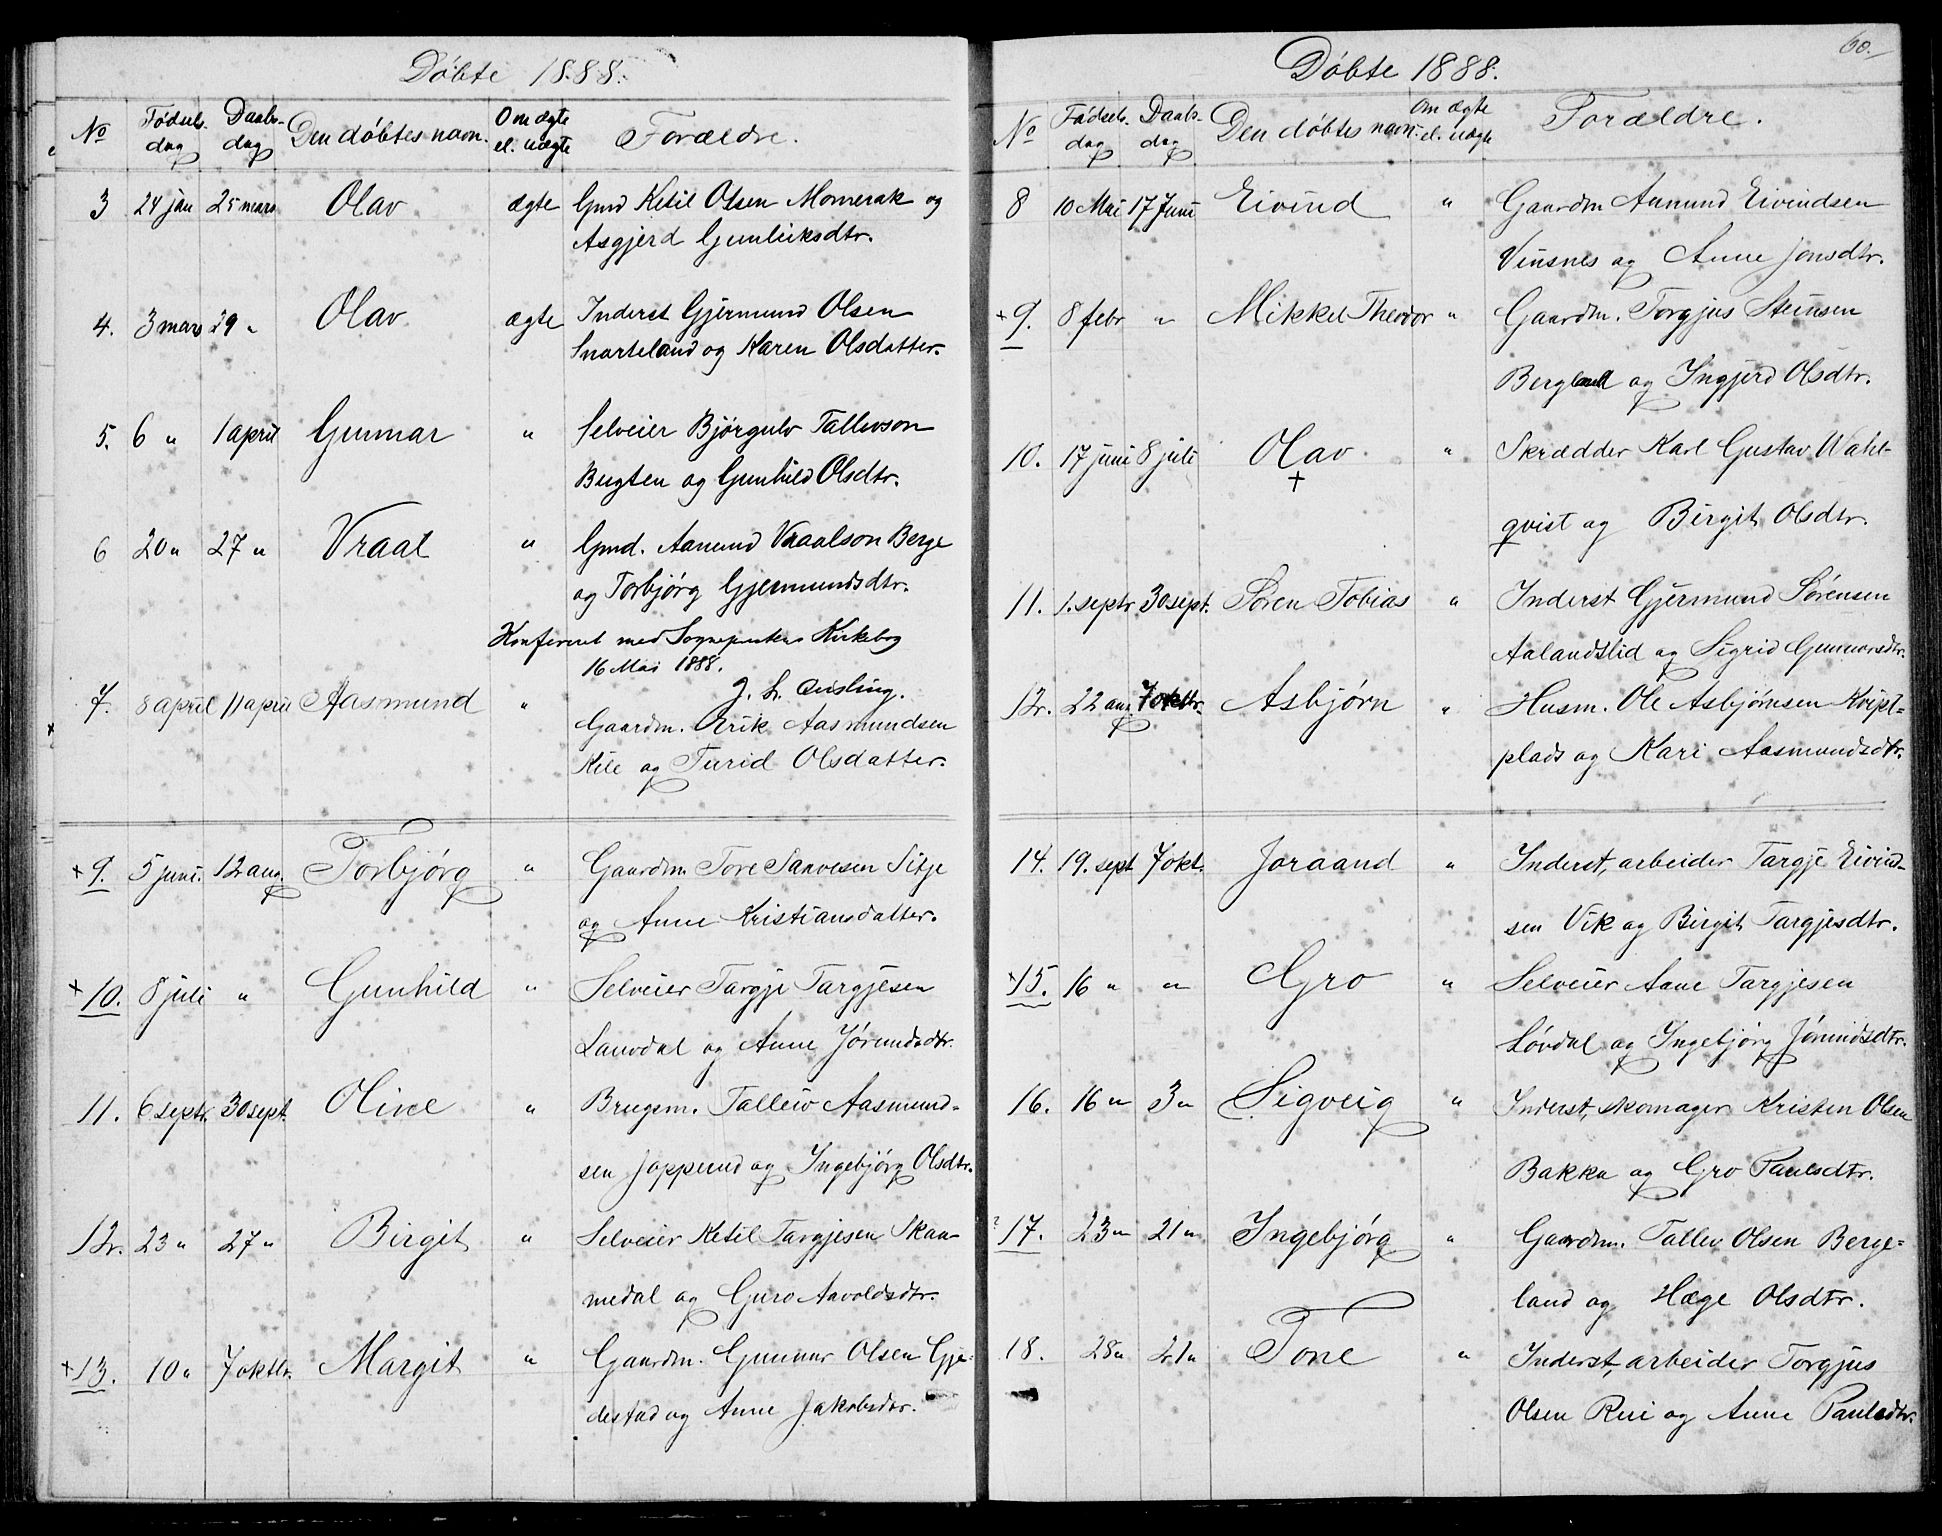 Döbte 1888.
No Fødsels- dag Daabs- dag Den döbtes navn. Om ægte el. uægte Forældre.
3 24 jan 25 mars Olav ægte Gmd Ketil Olsen Momerak og
Asgjerd Gunleiksdtr.
4. 3 mars 29 " Olav ægte Inderst Gjermund Olsen
Snarteland og Karen Olsdatter.
5. 6 " 1 april Gunnar " Selveier Bjørgulv Tallevson
Bugten og Gunhild Olsdtr.
6 20 " 27 " Vraal " Gmd. Aanund Vraalson Berge
og Torbjørg Gjermundsdtr.
Konfereret med Sognepresten Kirkebog
16 Mai 1888.
J. L. Qvisling.
7. 8 april 11 april Aasmund " Gaardm. Erik Aasmundsen
Kile og Turid Olsdatter.
+ 9. 5 juni. 12 aug. Torbjörg " Gaardm Tore Saavesen Sitje
og Anne Kristiansdatter.
+ 10. 8 juli " Gunhild " Selveier Targje Targjesen
Lauvdal og Anne Jörundsdtr.
11. 6 septr. 30 sept. Olive " Brugsm.Талleiv Aasmund-
sen Joppeund og Ingebjörg Olsdtr.
12. 23 " 27 " Birgit " Selveier Ketil Targjesen Skaa-
medal og Guro Aavoldsdtr.
+ 13. 10 " 7 oktbr. Margit " Gaardm. Gunnar Olsen Gje-
destad og Anne Jakobsdtr.
60.
Döbte 1888.
No Fødsels- dag Daabs- dag Den döbtes navn. Om ægte el. uægte Forældre.
8 10 Mai 17 Juni Eivind " Gaardm Aanund Eivindsen
Vinsnes og Anne Jonsdtr.
+ 9. 8 febr " Mikkel Theodor " Gaardm. Torgjus Steinsen
Bergland og Ingjerd Olsdtr.
10. 17 juni 8 juli Olav + " Skrædder Karl Gustav Wahl-
qvist og Birgit Olsdtr.
11. 1. septr 30 sept. Sören Tobias " Inderst Gjermund Sørensen
Aalandslid og Sigrid Gunnarsdtr.
12. 22 aug. 7 oktbr. Asbjørn " Husm. Ole Asbjørnsen
plads og Kari Aasmundsdtr.
14. 19. sept 7 okt. Joraand " Inderst, arbeider Targje Eivind-
sen Vik og Birgit Targjesdtr.
+ 15. 16 " " Gro " Selveier Aane Targjesen
Lövdal og Ingebjörg Jörundsdtr.
16. 16 " 3 " Sigveig " Inderst, skomager Kristen Olsen
Bakka og Gro Paulsdtr.
17. 23 " 21 " Ingebjörg " Gaardm. Tallev Olsen Berge-
land og Hæge Olsdtr.
18. 28 " 21 " Tone " Inderst, arbeider Torgjus
Olsen Rui og Anne Paulsdtr.